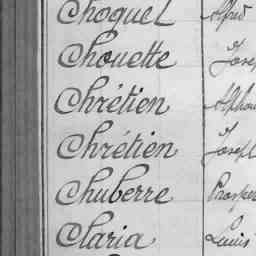 Choquel Alfred
Chouette Josep
Chrétien Alphon
Chrétien Joseph
Chuberre Prosper
Claria Louis